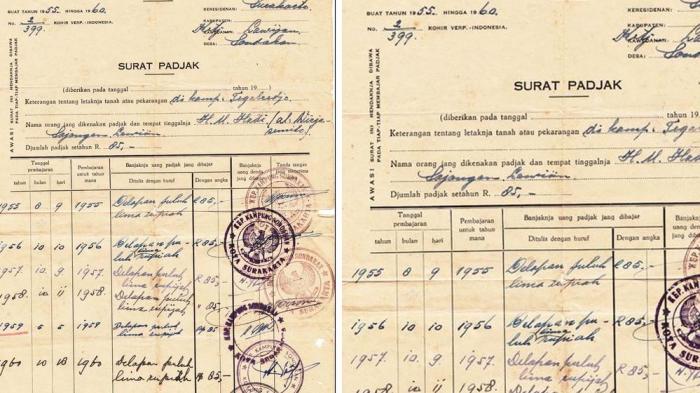 BUAT TAHUN 1955. HINGGA 1960.
No. 2/399. KOHIR VERP.-INDONESIA.
KERESIDENAN: Surakarta
KABUPATEN:
DESA: Sondakan
SURAT PADJAK
(diberikan pada tanggal tahun 19 )
Keterangan tentang letaknja tanah atau pekarangan di kamp. Tegalrejo
Nama orang jang dikenakan padjak dan tempat tinggalnja H. M. Hadi
Djumlah padjak setahun R. 85,-
AWAS! SURAT INI HENDAKNJA DIBAWA
PADA TIAP-TIAP MEMBAJAR PADJAK
Tanggal pembajaran
bulan hari
Pembajaran untuk tahun mana
Banjaknja uang padjak jang dibajar
Ditulis dengan huruf Dengan angka
Banjaknja uang denda jang dibajar
1955 8 9 1955 Delapan puluh lima rupiah R 85,-
1956 10 10 1956 Delapan puluh lima rupiah R 85,-
1957 10 9 1957. Delapan puluh lima rupijah R 85,-
1958. 10 11 1958. Delapan puluh lima rupijah 85,-
1959 5 5 1959 Delapan puluh lima rupiah 85,-
1960 10 10 1960 Delapan puluh lima rupiah 85,-
KSP. KAMPUNG SONDAKAN
KOTA SURAKARTA
BUAT TAHUN 1955. HINGGA 1960.
No. 2/399. KOHIR VERP.-INDONESIA.
KERESIDENAN:
KABUPATEN:
DESA: Sondakan
SURAT PADJAK
(diberikan pada tanggal
Keterangan tentang letaknja tanah atau pekarangan di kamp.
Nama orang jang dikenakan padjak dan tempat tinggalnja H. M.
Djumlah padjak setahun R. 85,-
AWAS! SURAT INI HENDAKNJA DIBAWA
PADA TIAP-TIAP MEMBAJAR PADJAK
Tanggal pembajaran
tahun bulan hari
Pembajaran untuk tahun mana
Banjaknja uang padjak jang dibajar
Ditulis dengan huruf Dengan angka
1955 8 9 1955 Delapan puluh lima rupiah R 85,-
1956 10 10 1956 Delapan puluh lima rupiah R 85,-
1957. 10 9 1957. Delapan puluh lima rupijah R 85,-
1958. 10 11 1958. Delapan puluh